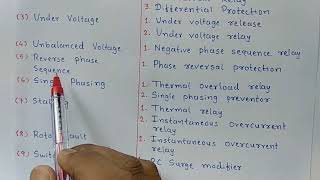 3. Differential Protection
(3) Under Voltage
1. Under voltage release
2. Under voltage relay
(4) Unbalanced Voltage
1. Negative phase sequence relay
(5) Reverse phase
Sequence
1. Phase reversal protection
(6) Single Phasing
1. Thermal overload relay
2. Single phasing preventor
(7)
1. Thermal relay
2. Instantaneous overcurrent
relay
(8)
1. Instantaneous overcurrent
relay
(9)
RC Surge modifier